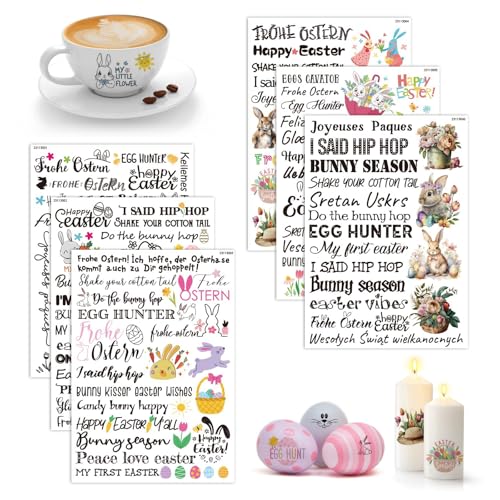 MY
LITTLE
FLOWER
FROHE OSTERN
Happy Easter
SHAKE YOUR COTTON TAIL
I said
EGGS CAVATOR
Happy
EASTER!
Frohe Ostern
Egg Hunter
Joyeuses Paques
I SAID HIP HOP
BUNNY SEASON
SHAKE YOUR COTTON TAIL
Sretan Uskrs
Do the bunny hop
EGG HUNTER
My first easter
I SAID HIP HOP
Bunny season
easter vibes
Frohe Ostern
HAPPY
easter
Wesołych Świąt wielkanocnych
Frohe Ostern
EGG HUNTER
FROHE
Ostern
Happy
Easter
Happy
easter
I SAID HIP HOP
SHAKE YOUR COTTON TAIL
Do the bunny hop
Joyeuses paques
Frohe Ostern! Ich hoffe, der Osterhase
kommt auch zu Dir gehoppelt!
Shake your cotton tail
Frohe
OSTERN
Do the bunny hop
EGG HUNTER
Frohe
Ostern
frohe ostern
I said hip hop
Bunny kisser easter wishes
Candy bunny happy
HAPPY EASTER Y'ALL
Bunny season
Happy
Easter!
Peace love easter
MY FIRST EASTER
EGG HUNT